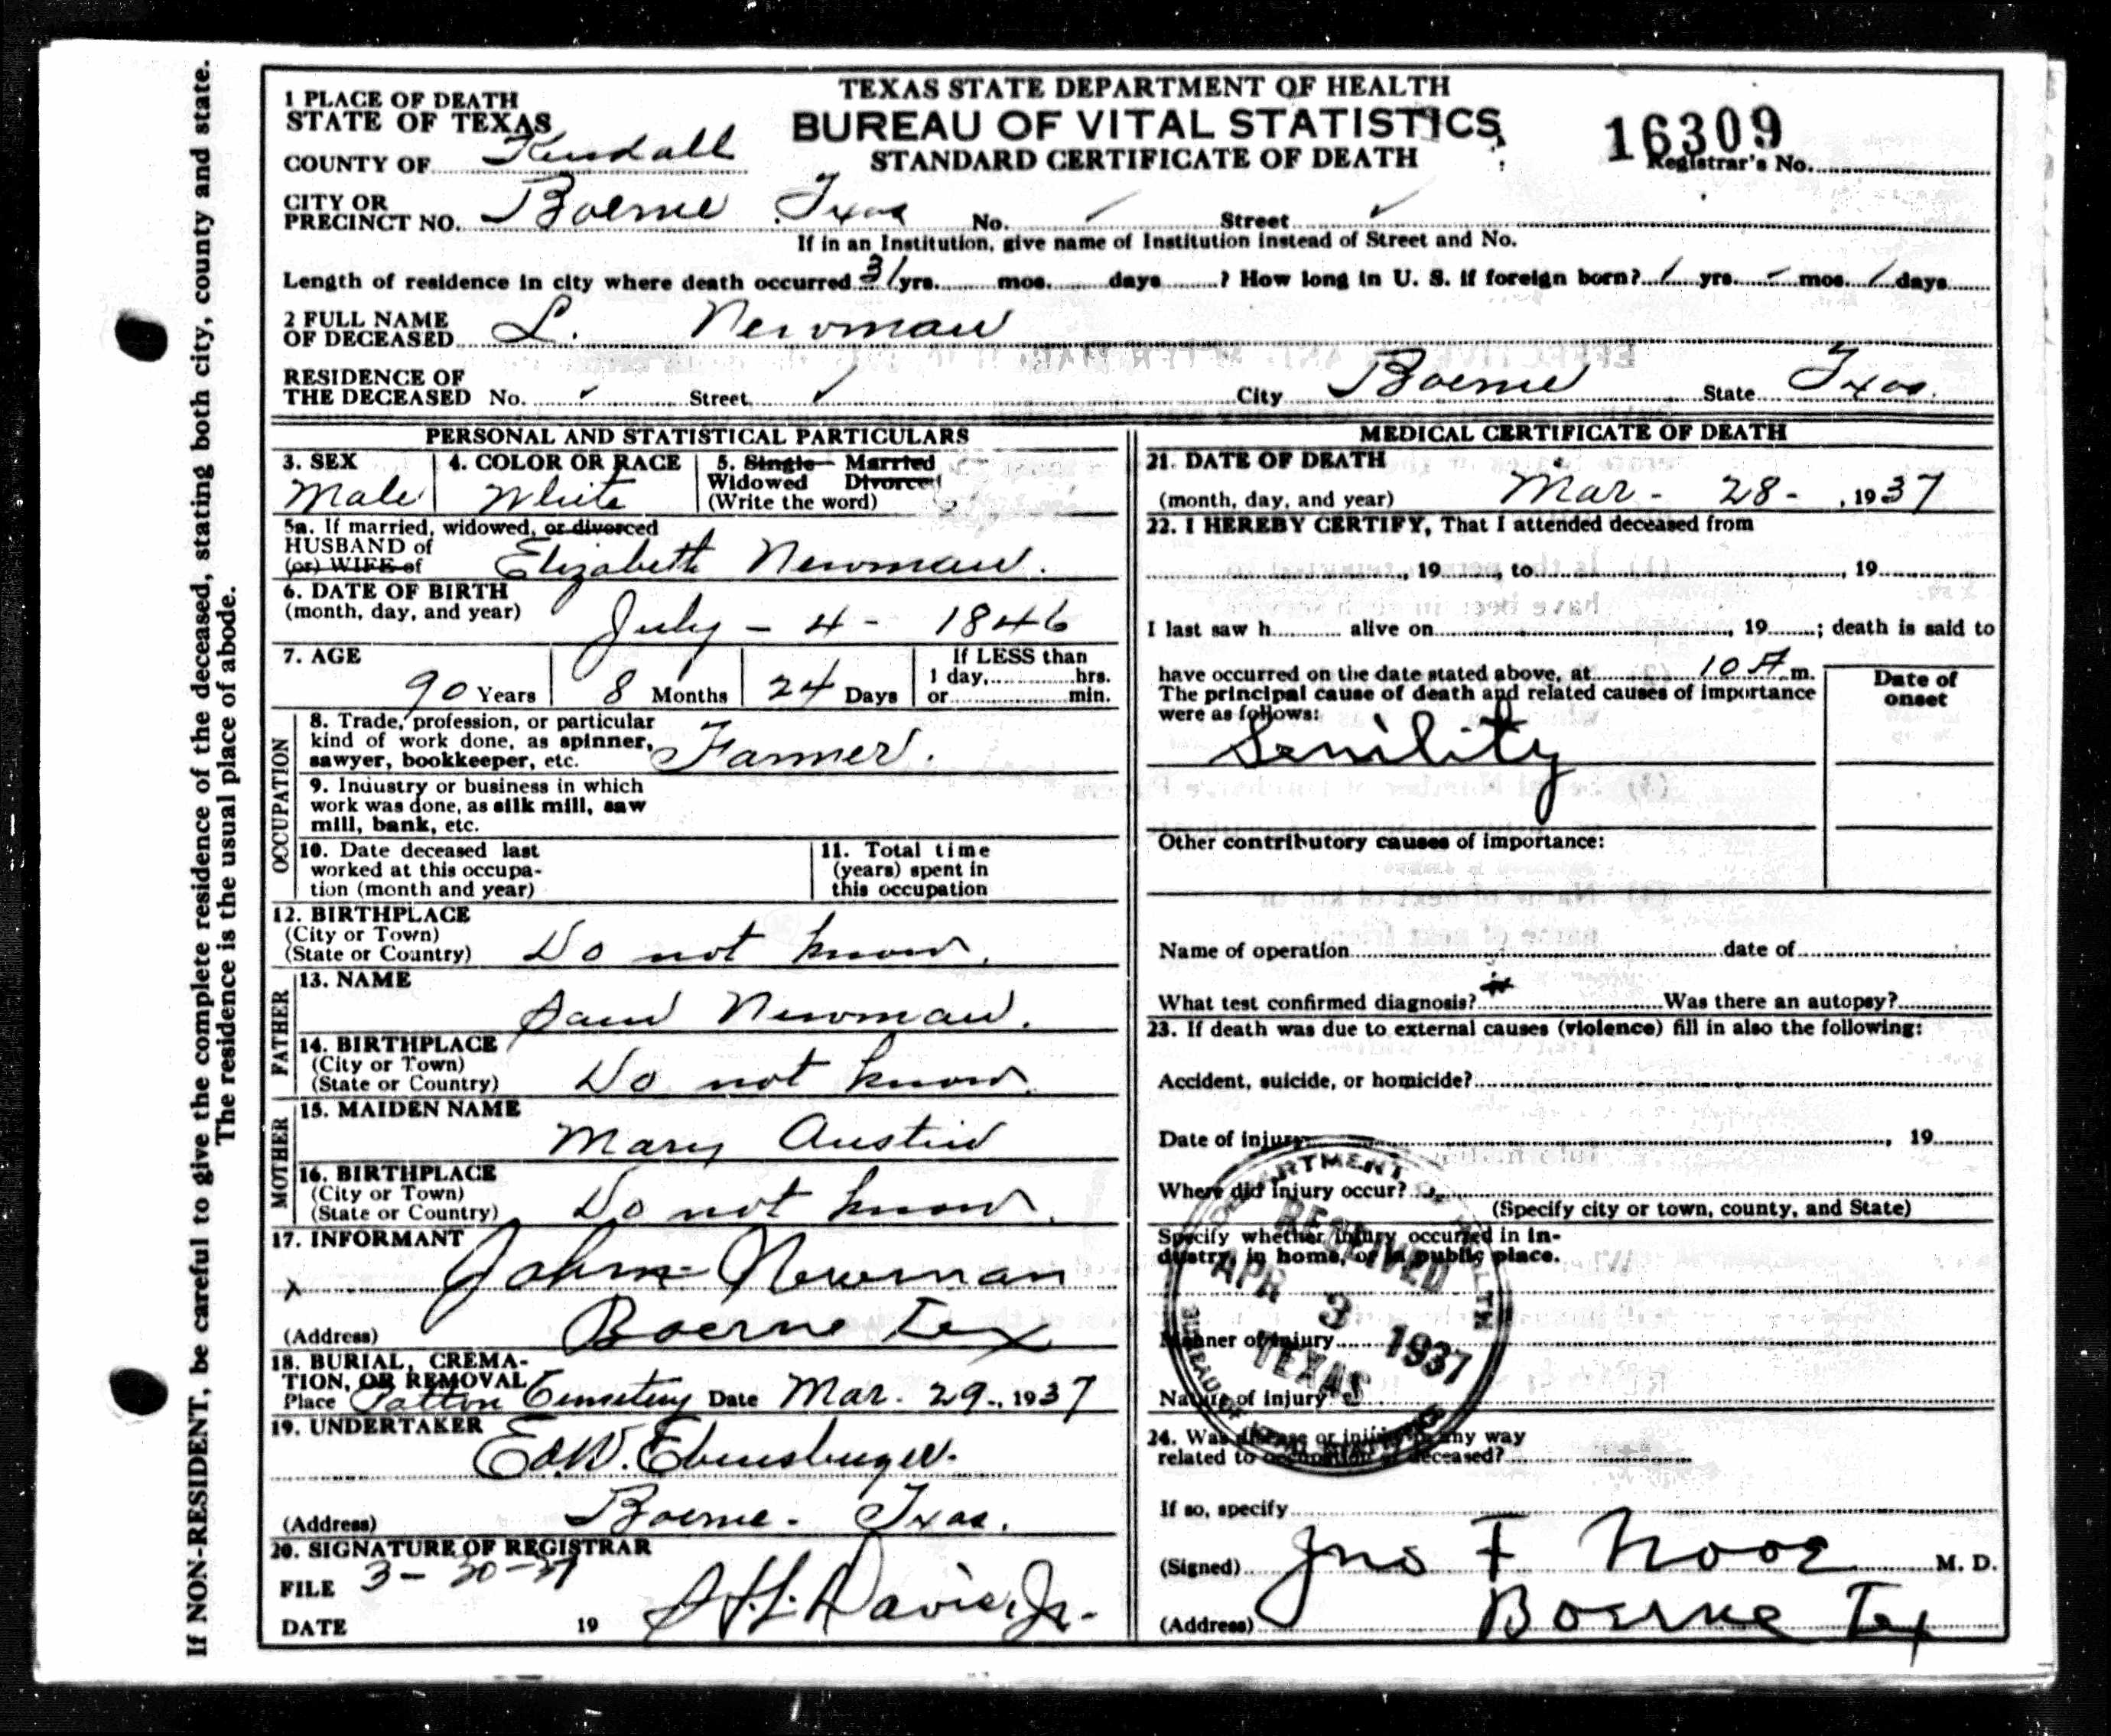 TEXAS STATE DEPARTMENT OF HEALTH
BUREAU OF VITAL STATISTICS
STANDARD CERTIFICATE OF DEATH
16309
Registrar's No.
1 PLACE OF DEATH
STATE OF TEXAS
COUNTY OF Kendall
CITY OR
PRECINCT NO. Boerne Texas No. Street
If in an Institution, give name of Institution instead of Street and No.
Length of residence in city where death occurred 31 yrs. mos. days ? How long in U. S. if foreign born? yrs. mos. days
2 FULL NAME
OF DECEASED L. Newman
RESIDENCE OF
THE DECEASED No. Street City Boerne State Texas.
PERSONAL AND STATISTICAL PARTICULARS
3. SEX
Male
4. COLOR OR RACE
White
5. Single Married
Widowed Divorced
(Write the word)
5a. If married, widowed, or divorced
HUSBAND of
(or) WIFE of Elizabeth Newman.
6. DATE OF BIRTH
(month, day, and year) July - 4 - 1846
7. AGE
90 Years 8 Months 24 Days
If LESS than
1 day, hrs.
or min.
OCCUPATION
8. Trade, profession, or particular
kind of work done, as spinner,
sawyer, bookkeeper, etc. Farmer.
9. Industry or business in which
work was done, as silk mill, saw
mill, bank, etc.
10. Date deceased last
worked at this occupa-
tion (month and year)
11. Total time
(years) spent in
this occupation
12. BIRTHPLACE
(City or Town)
(State or Country) Do not know.
FATHER
13. NAME
Sam Newman.
14. BIRTHPLACE
(City or Town)
(State or Country) Do not know.
MOTHER
15. MAIDEN NAME
Mary Austin
16. BIRTHPLACE
(City or Town)
(State or Country) Do not know.
17. INFORMANT
x John Newman
(Address) Boerne Tex
18. BURIAL, CREMA-
TION, OR REMOVAL
Place Patton Cemetery Date Mar. 29, 1937
19. UNDERTAKER
Ed. W. Ebensburger.
(Address) Boerne - Texas.
20. SIGNATURE OF REGISTRAR
FILE 3-30-37
DATE 19 Davis, Jr.
MEDICAL CERTIFICATE OF DEATH
21. DATE OF DEATH
(month, day, and year) Mar - 28 - , 1937
22. I HEREBY CERTIFY, That I attended deceased from
, 19 , to , 19
I last saw h alive on , 19 ; death is said to
have occurred on the date stated above, at 10 A m.
The principal cause of death and related causes of importance
were as follows:
Date of
onset
Senility
Other contributory causes of importance:
Name of operation date of
What test confirmed diagnosis? Was there an autopsy?
23. If death was due to external causes (violence) fill in also the following:
Accident, suicide, or homicide?
Date of injury , 19
Where did injury occur?
(Specify city or town, county, and State)
Specify whether injury occurred in in-
dustry, in home, or in public place.
Manner of injury
Nature of injury
24. Was disease or injury in any way
related to occupation of deceased?
If so, specify
(Signed) Jno F Nooe M. D.
(Address) Boerne Tex
RECEIVED
APR 3 1937
TEXAS
If NON-RESIDENT, be careful to give the complete residence of the deceased, stating both city, county and state.
The residence is the usual place of abode.